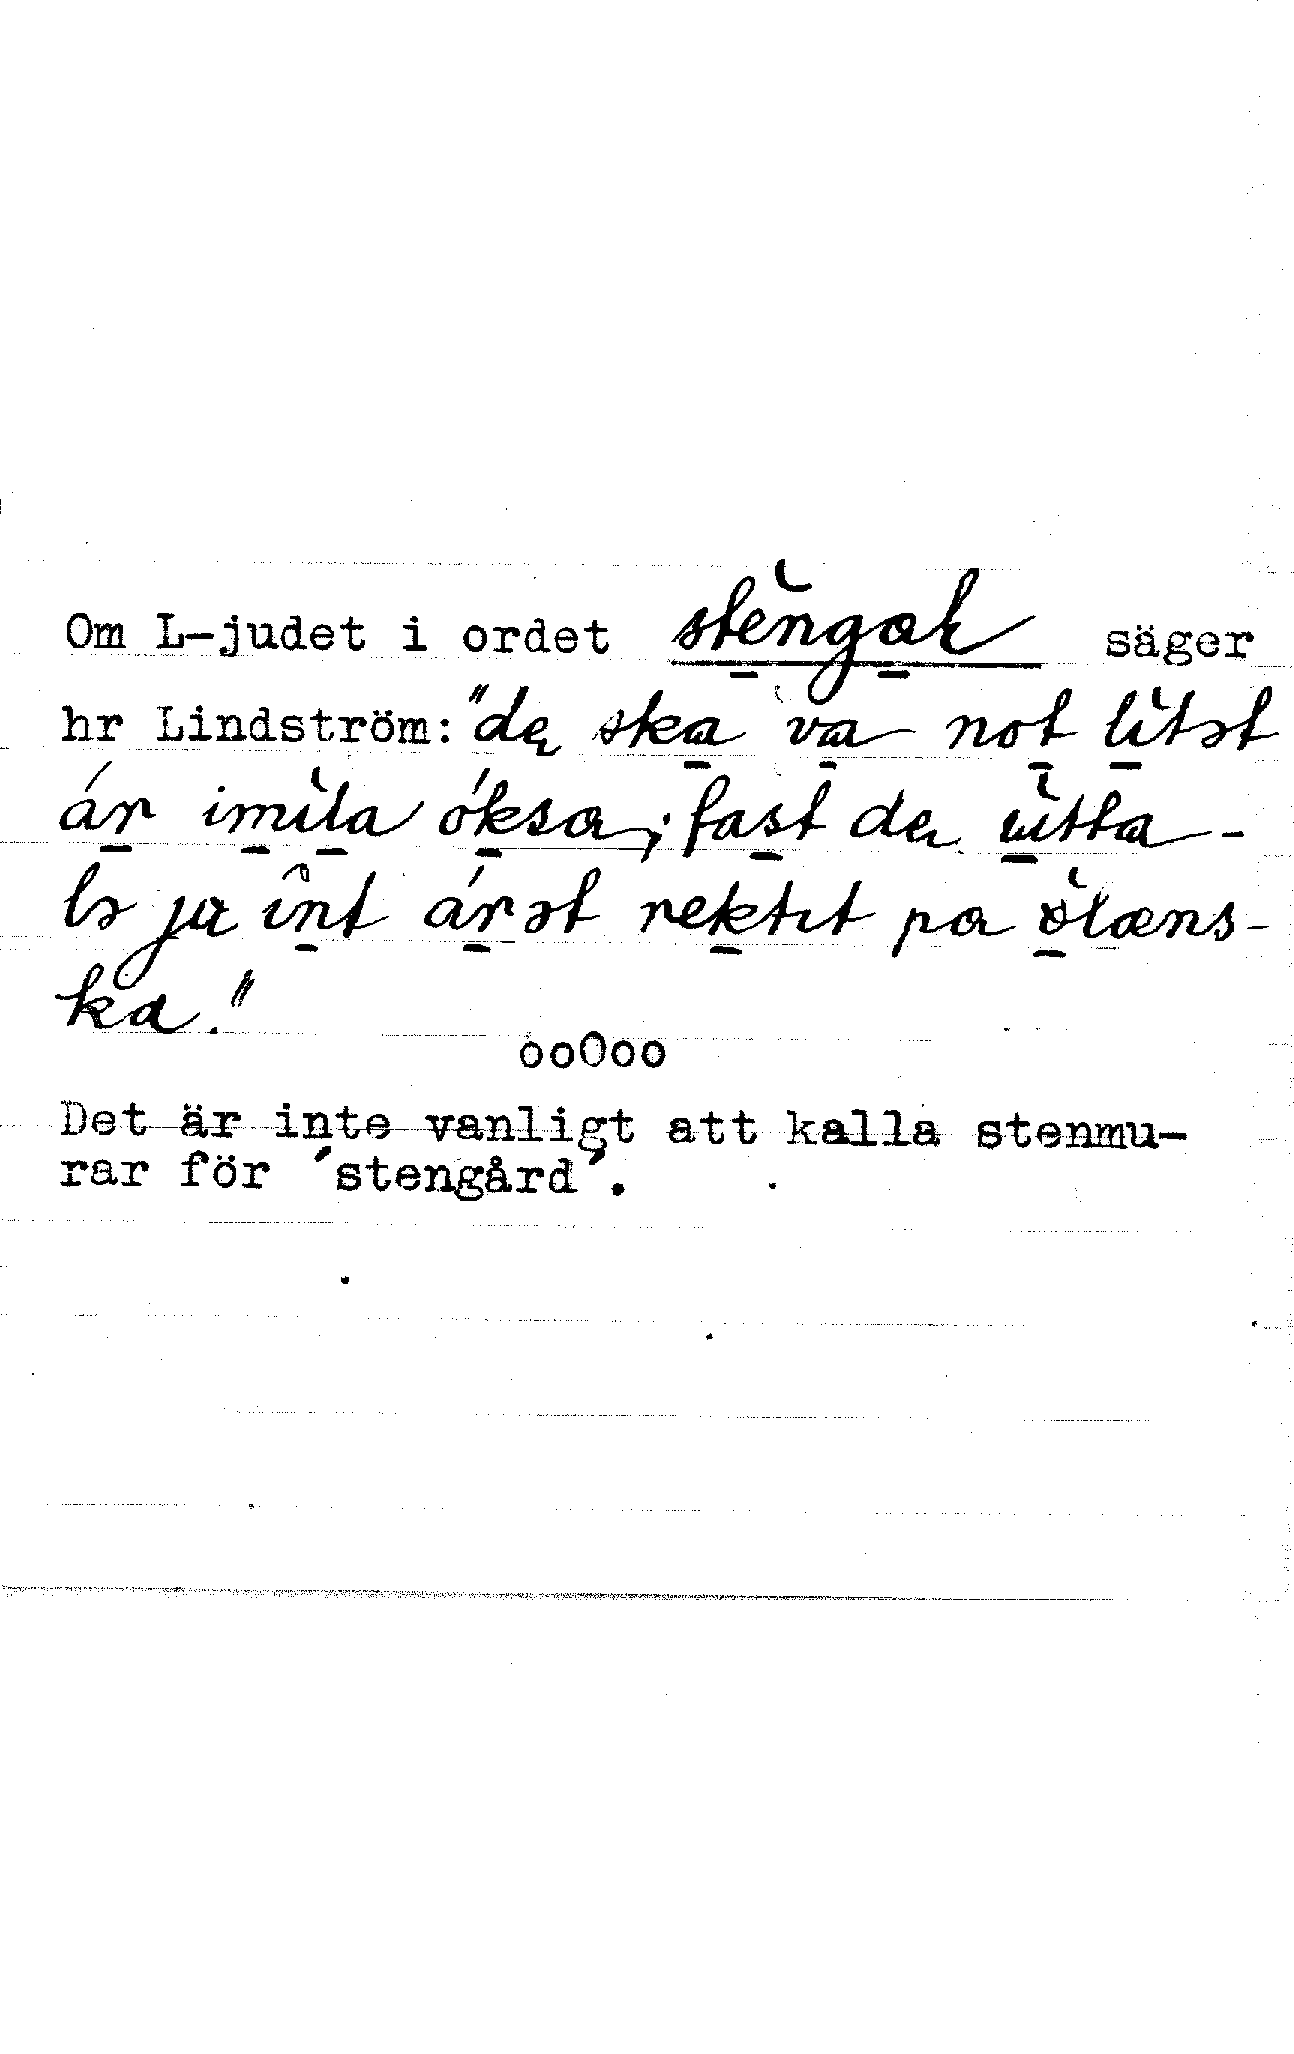 Om L-judet i ordet stèngaɫ säger
hr Lindström: "dę ska va not lìtət
ár imìla óksa; fast dę ùtta-
ls ja înt árət rektit pa ò̀læns-
ka."
ooOoo
Det är inte vanligt att kalla stenmu-
rar för ´stengård´.